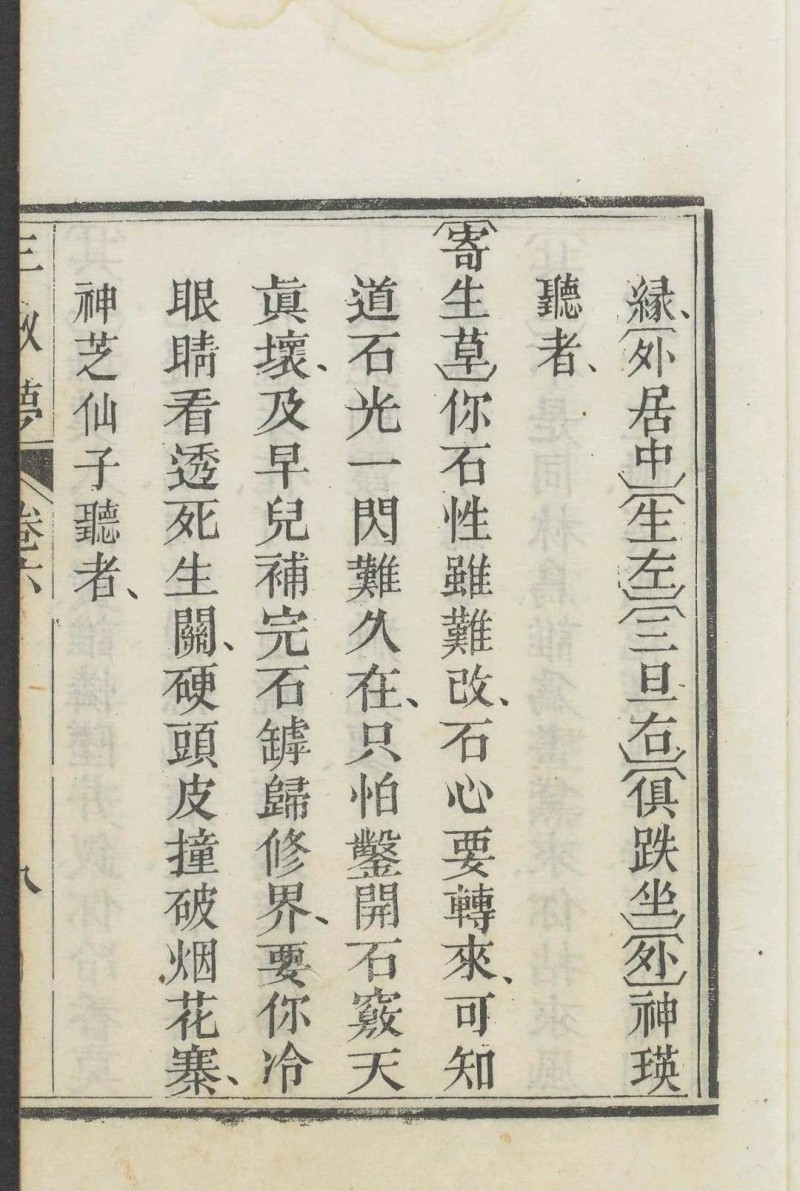 緣、(外居中)(生左)(三旦右)(俱趺坐)(外)神瑛
聽者、
(寄生草)你石性雖難改、石心要轉來、可知
道石光一閃難久在、只怕鑿開石竅天
眞壞、及早兒補完石罅歸修界、要你冷
眼睛看透死生關、硬頭皮撞破烟花寨、
神芝仙子聽者、
卷六